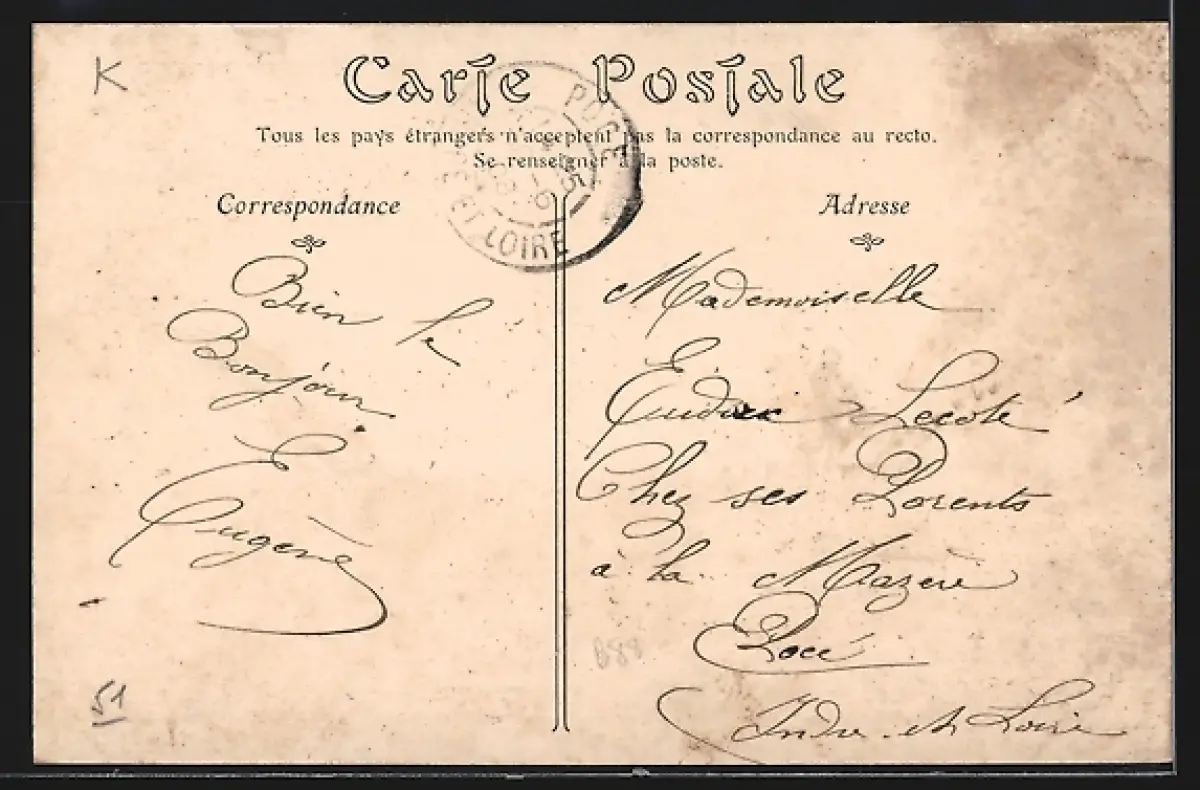 K
Carte Postale
Tous les pays étrangers n'acceptent pas la correspondance au recto.
Se renseigner à la poste.
POCÉ
ET LOIRE
Correspondance
Adresse
Bien le
Bonjour
Eugène
51
Mademoiselle
Lecoté
Chez ses Parents
à la Mazère
Pocé
Indre et Loire
888